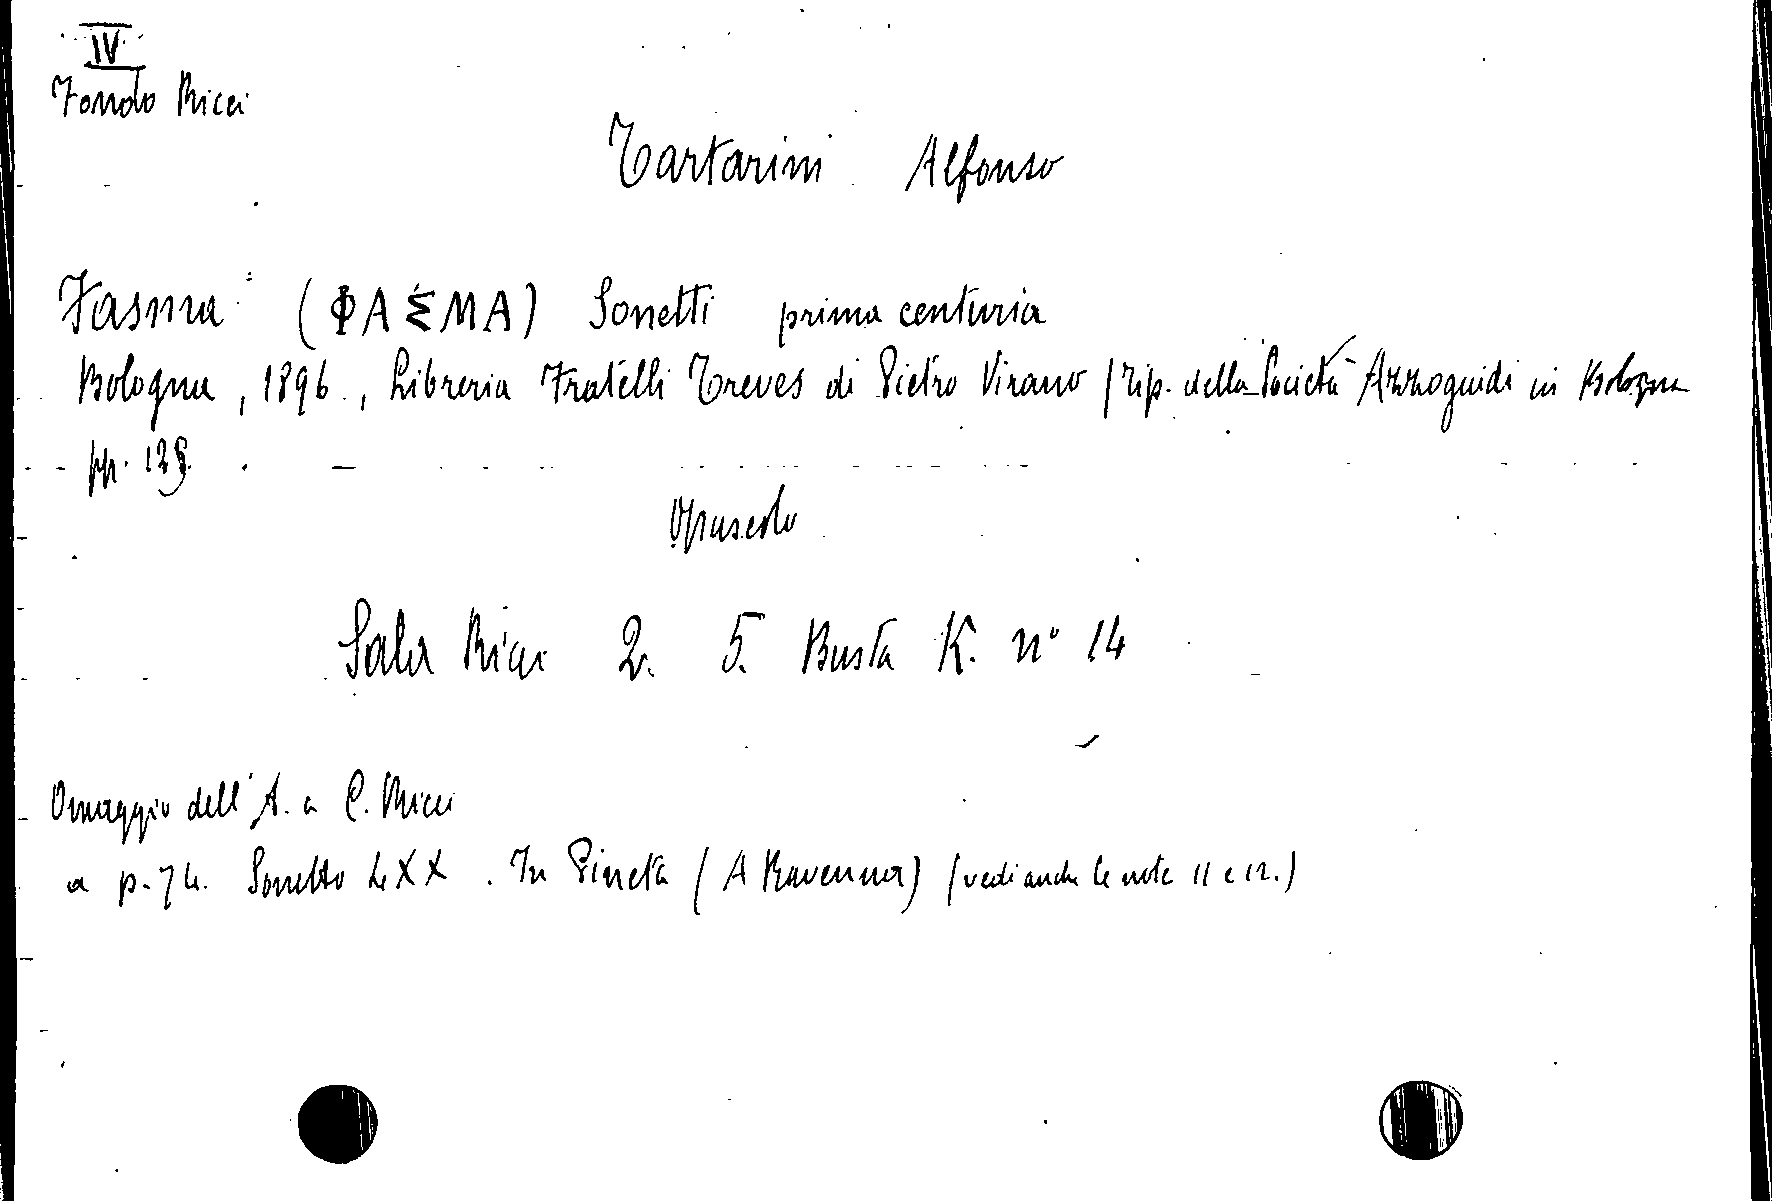 IV
Fondo Ricci
Tartarini Alfonso
Fasma (ΦΑΣΜΑ) Sonetti prima centuria
Bologna, 1896., Libreria Fratelli Treves di Pietro Virano (Tip. della Società Azzoguidi in Bologna
pp.
Opuscolo
Sala Ricci 2. 5. Busta K. n° 14
Omaggio dell'A. a C. Ricci
a p. 74. Sonetto LXX. In Pineta (A Ravenna) (vedi anche le note 11 e 12.)